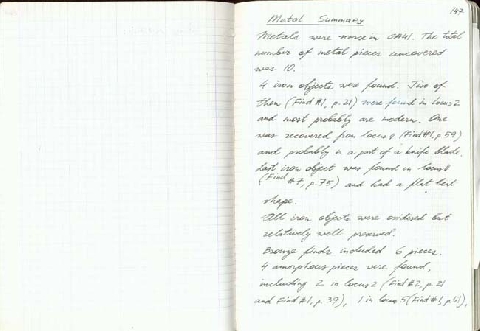 147
Metal Summary
Metals were in OA41. The total
number of metal pieces uncovered
was 10.
4 iron objects were found. Two of
them (Find #1, p.21) were found in Locus 2
and most probably are modern. One
was recovered from Locus 8 (Find #1, p.59)
and probably is a part of a knife blade.
Last iron object was found in Locus
(Find #7, p.75) and had a flat bent
shape.
All iron objects were oxidized but
relatively well preserved.
Bronze finds included 6 pieces.
4 amorphous pieces were found,
including 2 in Locus 2 (Find #2, p.21
and Find #1, p.39), 1 in Locus 5 (Find #1, p.41),